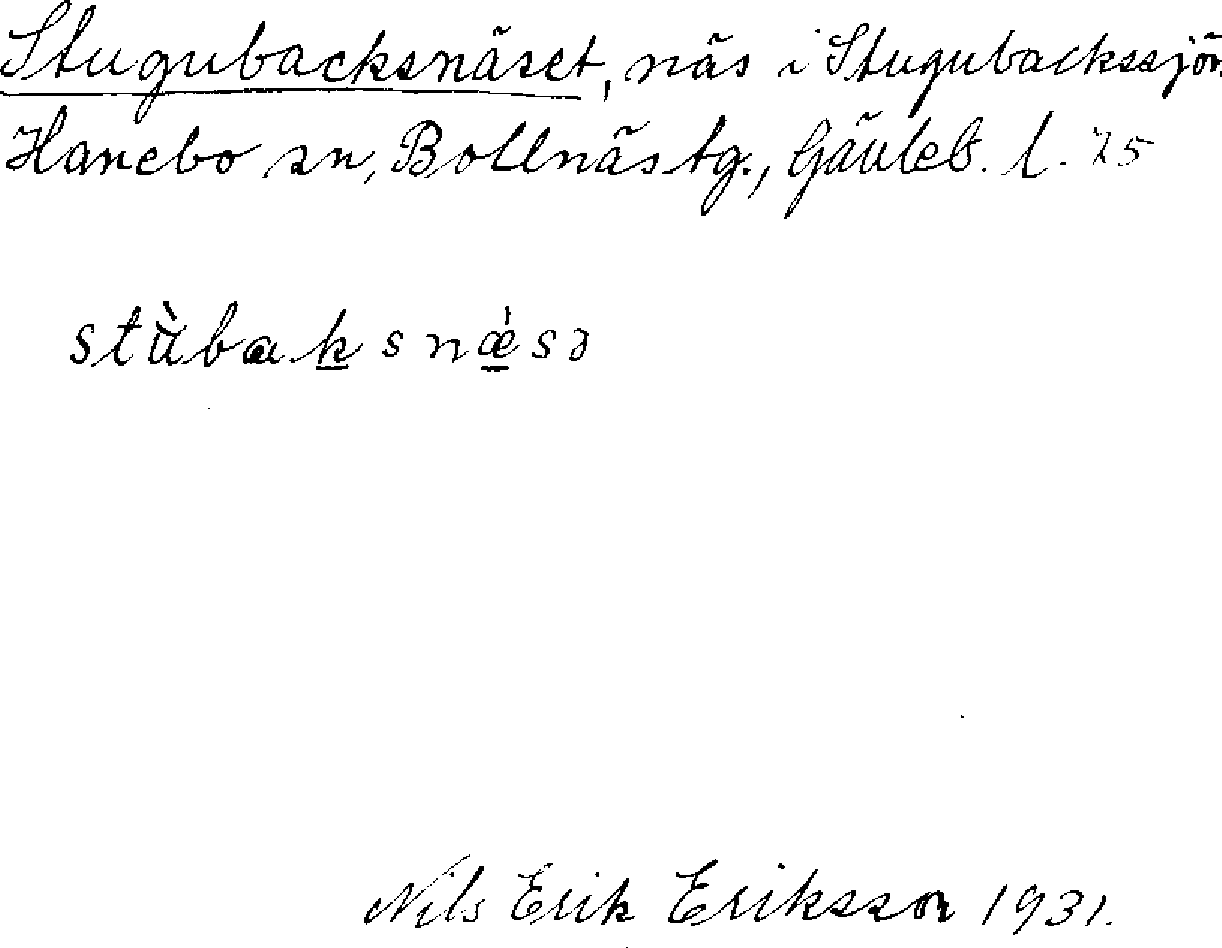 Stugubacksnäset, näs i Stugubackssjön
Hanebo sn, Bollnäs tg., Gävleb. l. 25
stùbaksnǽsə
Nils Erik Eriksson 1931.